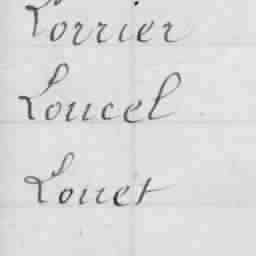 Lorrier
Loucel
Louet